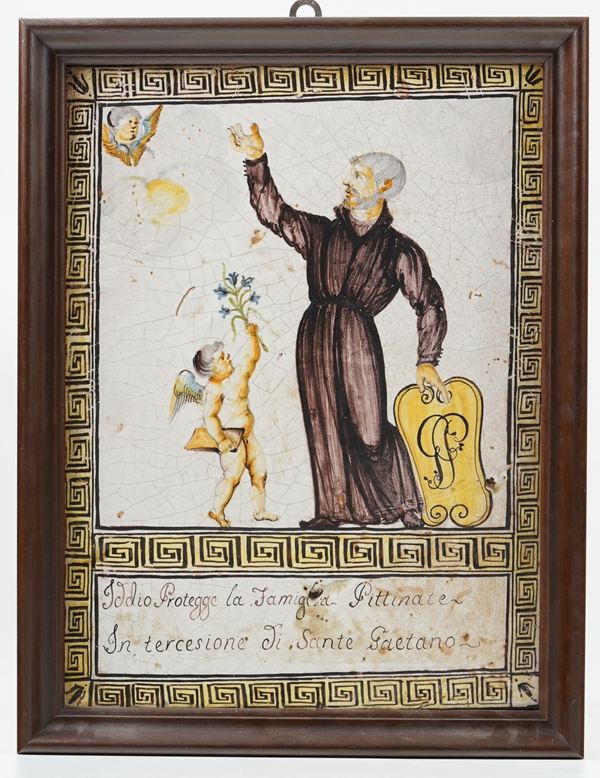 GP
Iddio Protegge la Famiglia Pittinate
In tercesione di Sante Gaetano